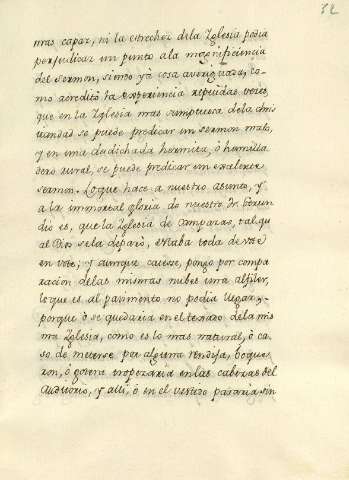 32
mas capàz, ni la estrechez de la Yglesia podia
perjudicar un punto ala magnificiencia
del sermon, siendo yà cosa averiguada, co-
mo acreditò la experiencia repetidas veces,
que en la Yglesia mas sumptuosa dela chris
tiandad se puede predicar un sermon malo,
y en una desdichada hermita, ò humilla
dero rural, se puede predicar un excelente
sermon. Loque hace a nuestro asunto, y
a la immortal gloria de nuestro Fr. Gerun
dio es, que la Yglesia de Campazas, tal qu
al Dios se la deparò, estaba toda de vote
en vote; y aunque cayesse, pongo por compa
racion delas mismas nubes un alfiler,
lo que es al pavimento no podia llegar,
porque ò se quedaria en el texado dela mis
ma Yglesia, como es lo mas natural, ò ca-
so de meterse por alguna rendija, boque-
ron, ò gotera tropezaria en las cabezas del
Auditorio, y alli, ò en el vestido pararia, sin